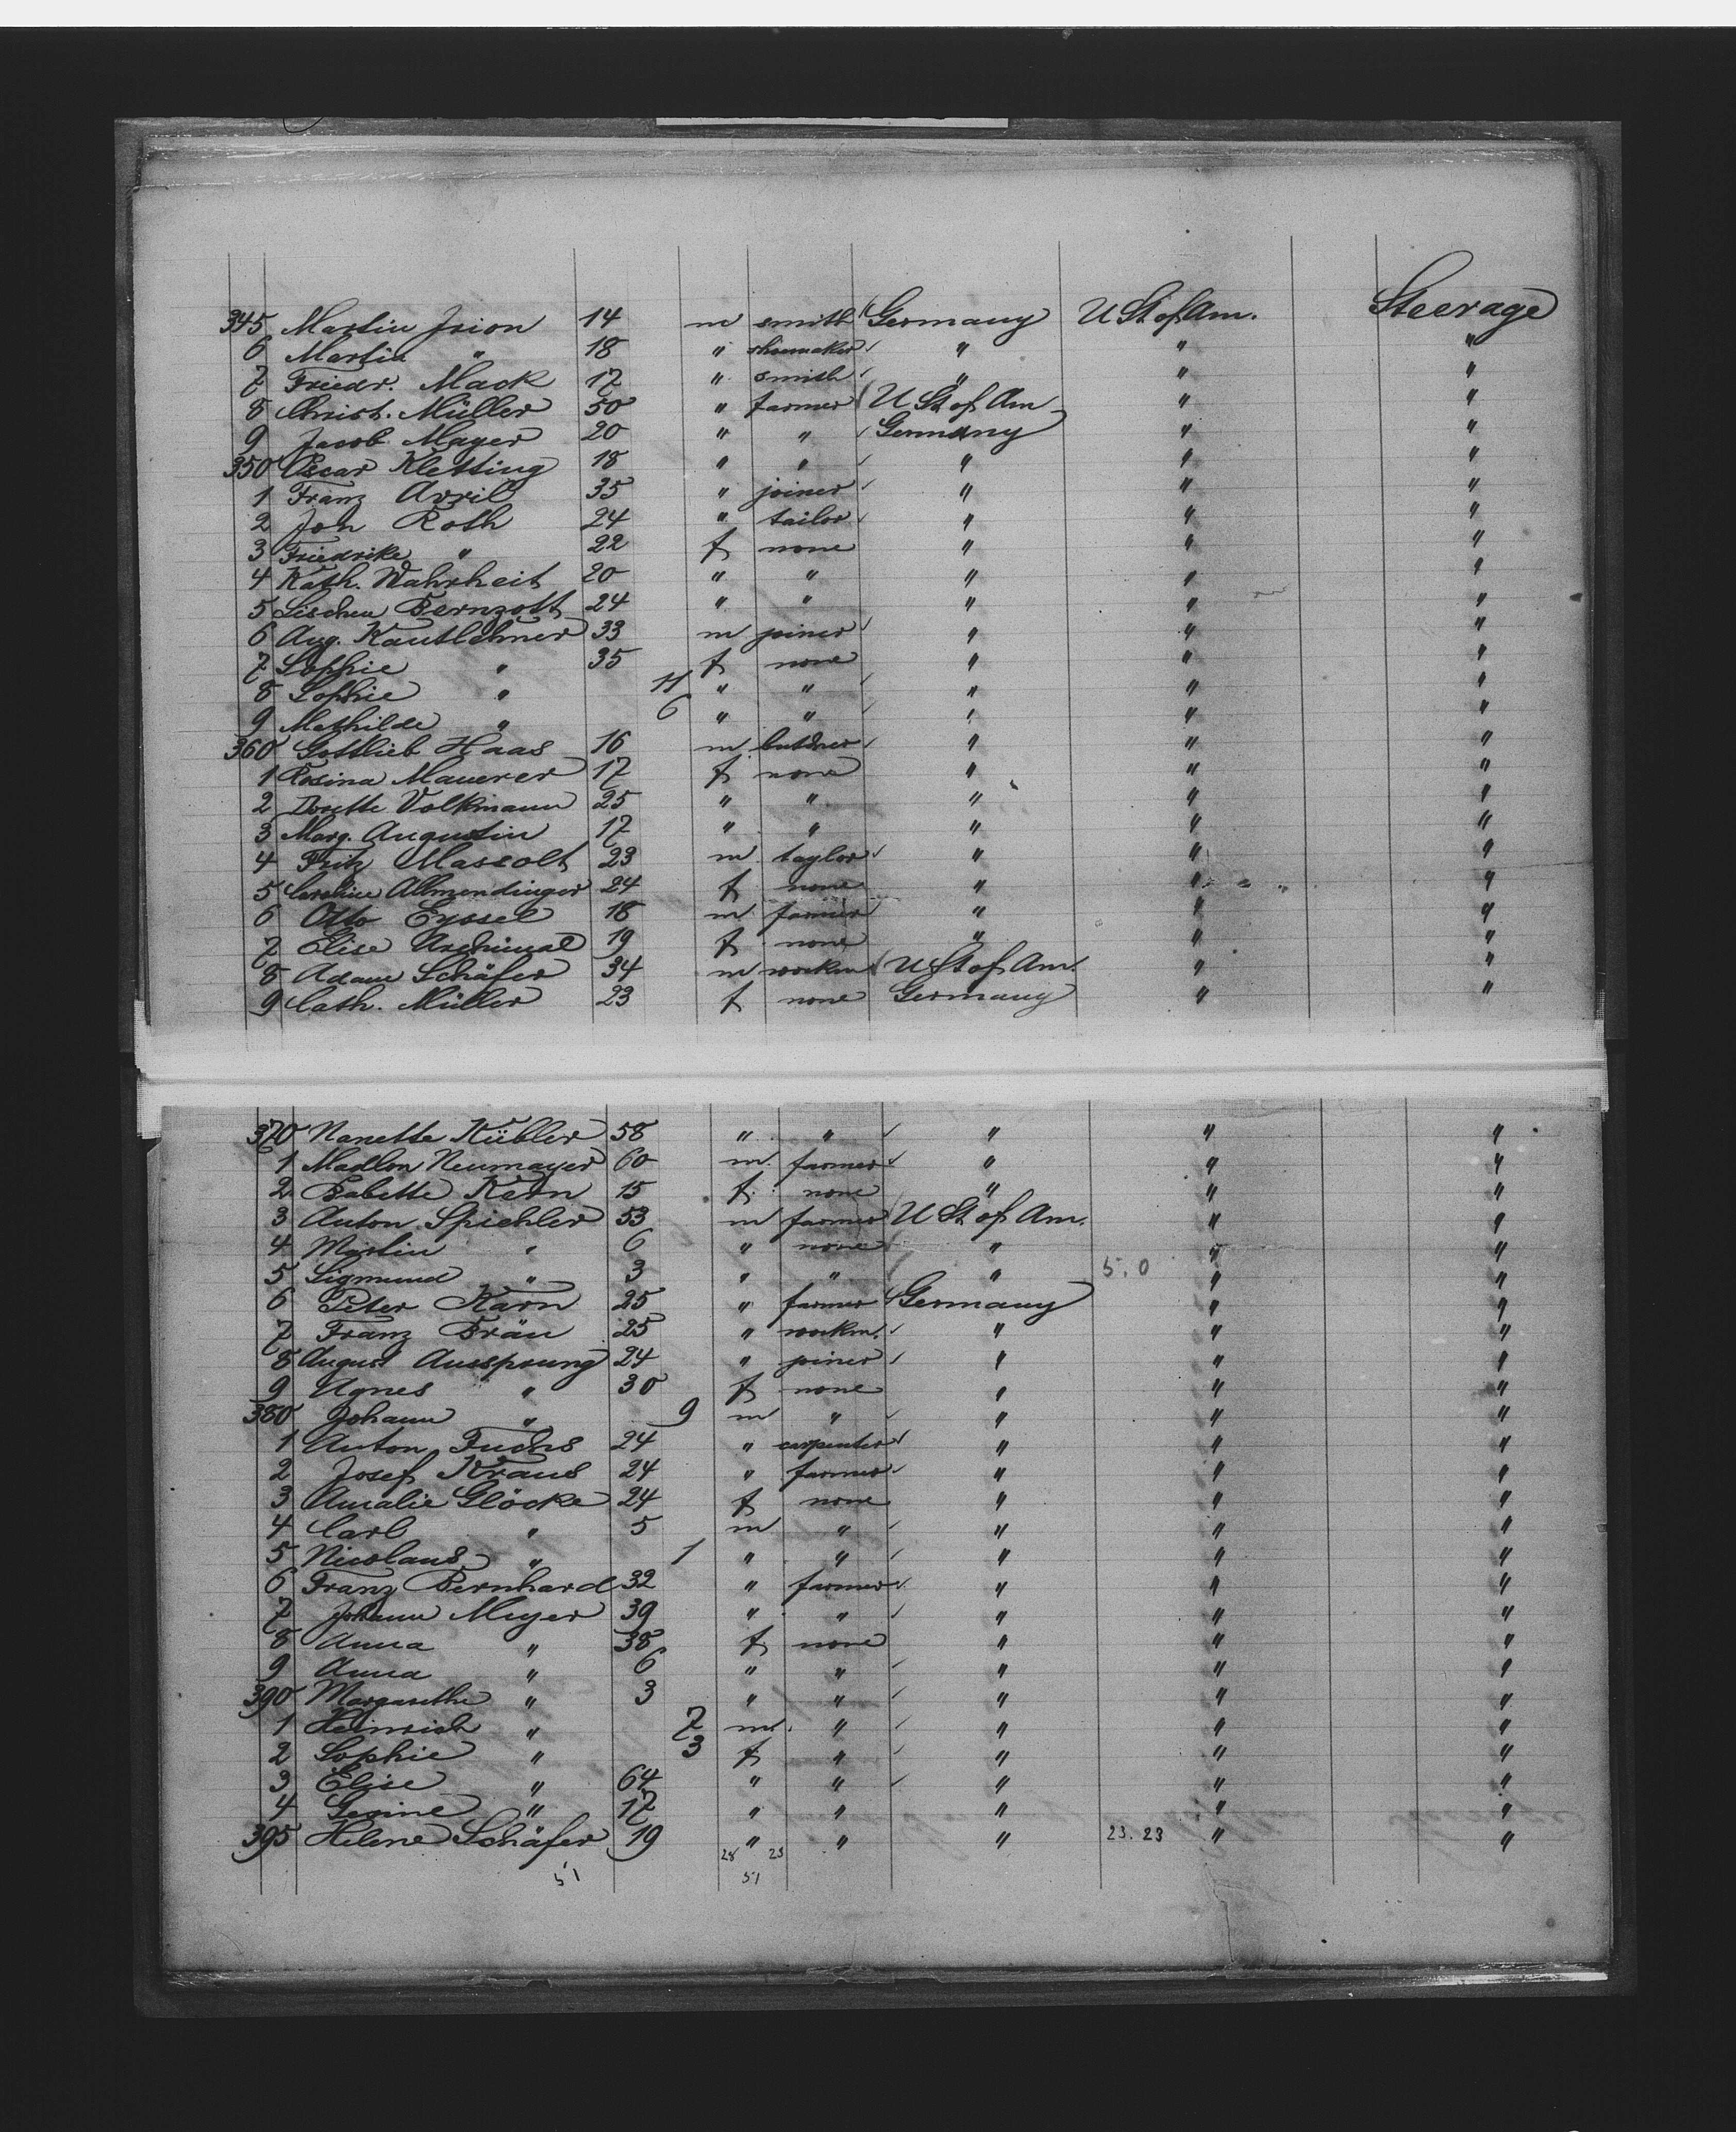 345 Martin Irion 14 m smith Germany U St of Am. Steerage
6 Martin " 18 " shoemaker " " "
7 Friedr. Mack 17 " smith " " "
8 Christ. Müller 50 " farmer U St of Am " "
9 Jacob Mayer 20 " " Germany " "
350 Oscar Kletting 18 " " " " "
1 Franz Avril 35 " joiner " " "
2 Joh Roth 24 " tailor " " "
3 Friedrike " 22 f none " " "
4 Kath. Wahrheit 20 " " " " "
5 Lischen Bernzott 24 " " " " "
6 Aug. Kautlehner 33 m joiner " " "
7 Sophie " 35 f none " " "
8 Sophie " 11 " " " " "
9 Mathilde " 6 " " " " "
360 Gottlieb Haas 16 m butcher " " "
1 Rosina Mauerer 17 f none " " "
2 Dorette Volkmann 25 " " " " "
3 Marg. Augustin 17 " " " " "
4 Fritz Massolt 23 m taylor " " "
5 Caroline Allmendinger 24 f none " " "
6 Otto Eyssel 18 m farmer " " "
7 Elise 19 f none " " "
8 Adam Schäfer 34 m workm U St of Am. " "
9 Cath. Müller 23 f none Germany " "
370 Nanette Kübler 58 " " " " "
1 Madlon Neumayer 60 m farmer " " "
2 Babette Kern 15 f none " " "
3 Anton Spichler 53 m farmer U St of Am. " "
4 Martin " 6 " none " " "
5 Sigmund " 3 " " " 5.0 " "
6 Peter Karn 25 " farmer Germany " "
7 Franz Bräu 25 " workm. " " "
8 August Aussprung 24 " joiner " " "
9 Agnes " 30 f none " " "
380 Johann " 9 m " " " "
1 Anton Fuchs 24 " carpenter " " "
2 Josef Kraus 24 " farmer " " "
3 Amalie Glöcke 24 f none " " "
4 Carl " 5 m " " " "
5 Nicolaus " 1 " " " " "
6 Franz Bernhard 32 " farmer " " "
7 Johann Meyer 39 " " " " "
8 Anna " 38 f none " " "
9 Anna " 6 " " " " "
390 Margarethe " 3 " " " " "
1 Heinrich " 7 m " " " "
2 Sophie " 3 f " " " "
3 Elise " 64 " " " " "
4 Gesine " 17 " " " " "
395 Helene Schäfer 19 " " " 23.23 " "
28 23
51 51